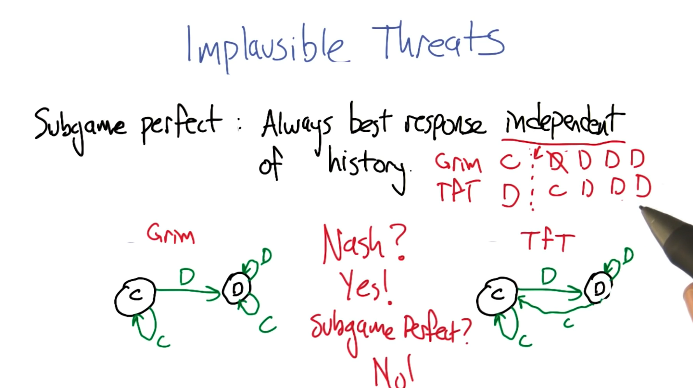 Implausible Threats
Subgame perfect : Always best response independent
of history.
Grim C D D D D
TfT D C D D D
Grim
Nash?
Yes!
Subgame Perfect?
No!
TfT
C D D D C C
C D D D C C